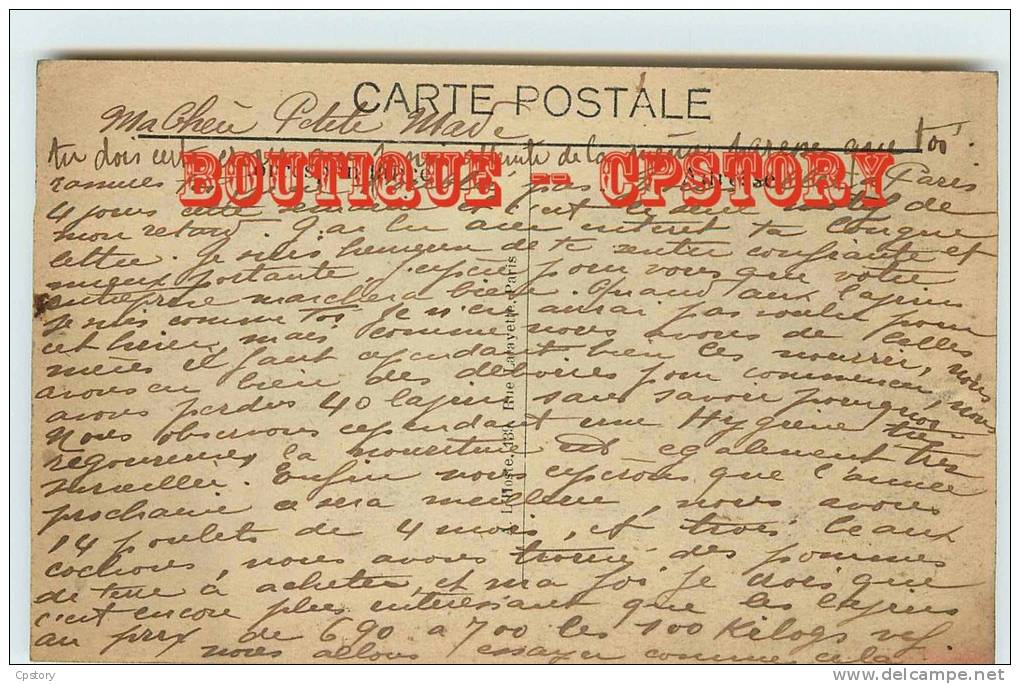 CARTE POSTALE
Ma Chère Petite Made
tu dois de la
BOUTIQUE -- CPSTORY
Paris
4 jours cette semaine et c'est le seul motif de
mon retard. J'ai lu avec interet ta longue
lettre. Je suis heureux de te sentir confiante et
mieux portante, j'espère pour vous que votre
entreprise marchera bien. Quand aux lapins
je suis comme toi je n'en aurai pas voulu pour
mais comme nous avons de belles
mères il faut cependant bien les nourrir, nous
avons eu bien des déboires pour commencer, nous
avons perdus 40 lapins sans savoir pourquoi
Nous observons cependant une Hygiène très
régoureuse, la nourriture est egalement très
surveillée. Enfin nous espérons que l'année
prochaine ce sera meilleur, nous avons
14 poulets de 4 mois, et trois beaux
cochons, nous avons trouvé des pommes
de terre à acheter, et ma foi je crois que
c'est encore plus intéressant que les lapins
au prix de 690 a 700 les 100 Kilogs vif
nous allons essayer comme cela
Lhoste, 139, Rue Lafayette, Paris
Cpstory
www.delcampe.net